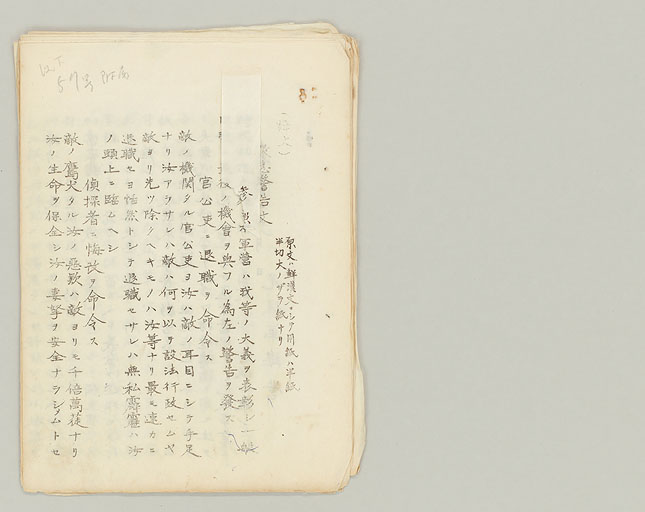 以下
57号 附属
原文ハ鮮漢文ニシテ用紙ハ半紙
半切大ノザラ紙ナリ
警告文
軍營ハ我等ノ大義ヲ表彰シ一
後ノ機會ヲ與フル為左ノ警告ヲ發ス
官公吏ニ退職ヲ命令ス
敵ノ機関タル官公吏ヨ汝ハ敵ノ耳目ニシテ手足
ナリ汝アラサレハ敵ハ何ヲ以テ設法行政セムヤ
敵ヨリ先ツ除クヘキモノハ汝等ナリ最モ速カニ
退職セヨ恬然トシテ退職セサレハ無私霹靂ハ汝
ノ頭上ニ臨ムヘシ
偵探者ニ悔改ヲ命令ス
敵ノ鷹犬タル汝ノ惡歎ハ敵ヨリモ千倍萬蓰ナリ
汝ノ生命ヲ保全シ汝ノ妻孥ヲ安全ナラシメムトセ